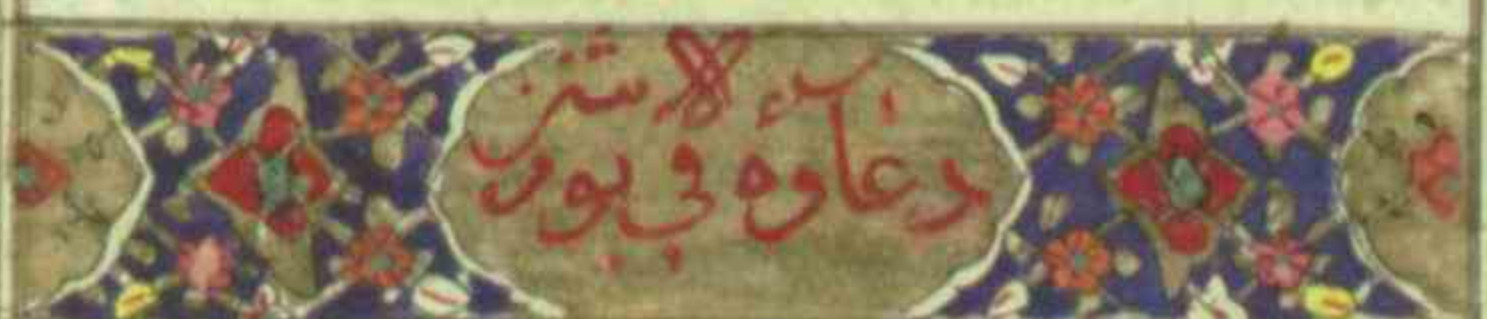 دعاوه في يوم
الاثنين